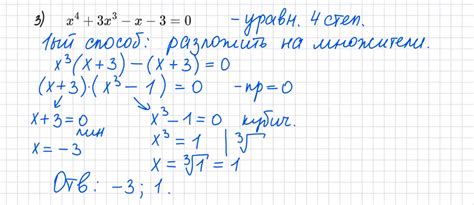 3) x⁴ + 3x³ − x − 3 = 0 - уравн. 4 степ.
1ый способ: разложить на множители.
x³(x+3) − (x+3) = 0
(x+3)·(x³ − 1) = 0 - пр=0
x+3=0 x³−1=0 кубич.
лин x³ = 1 | ∛
x = −3 x = ∛1 = 1
Отв: −3; 1.